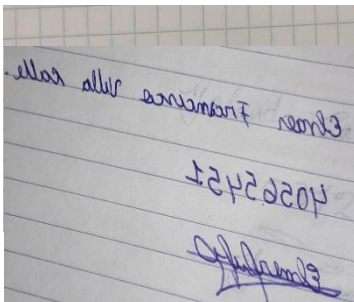 Elmer Francisco Villa Calle.
40565451